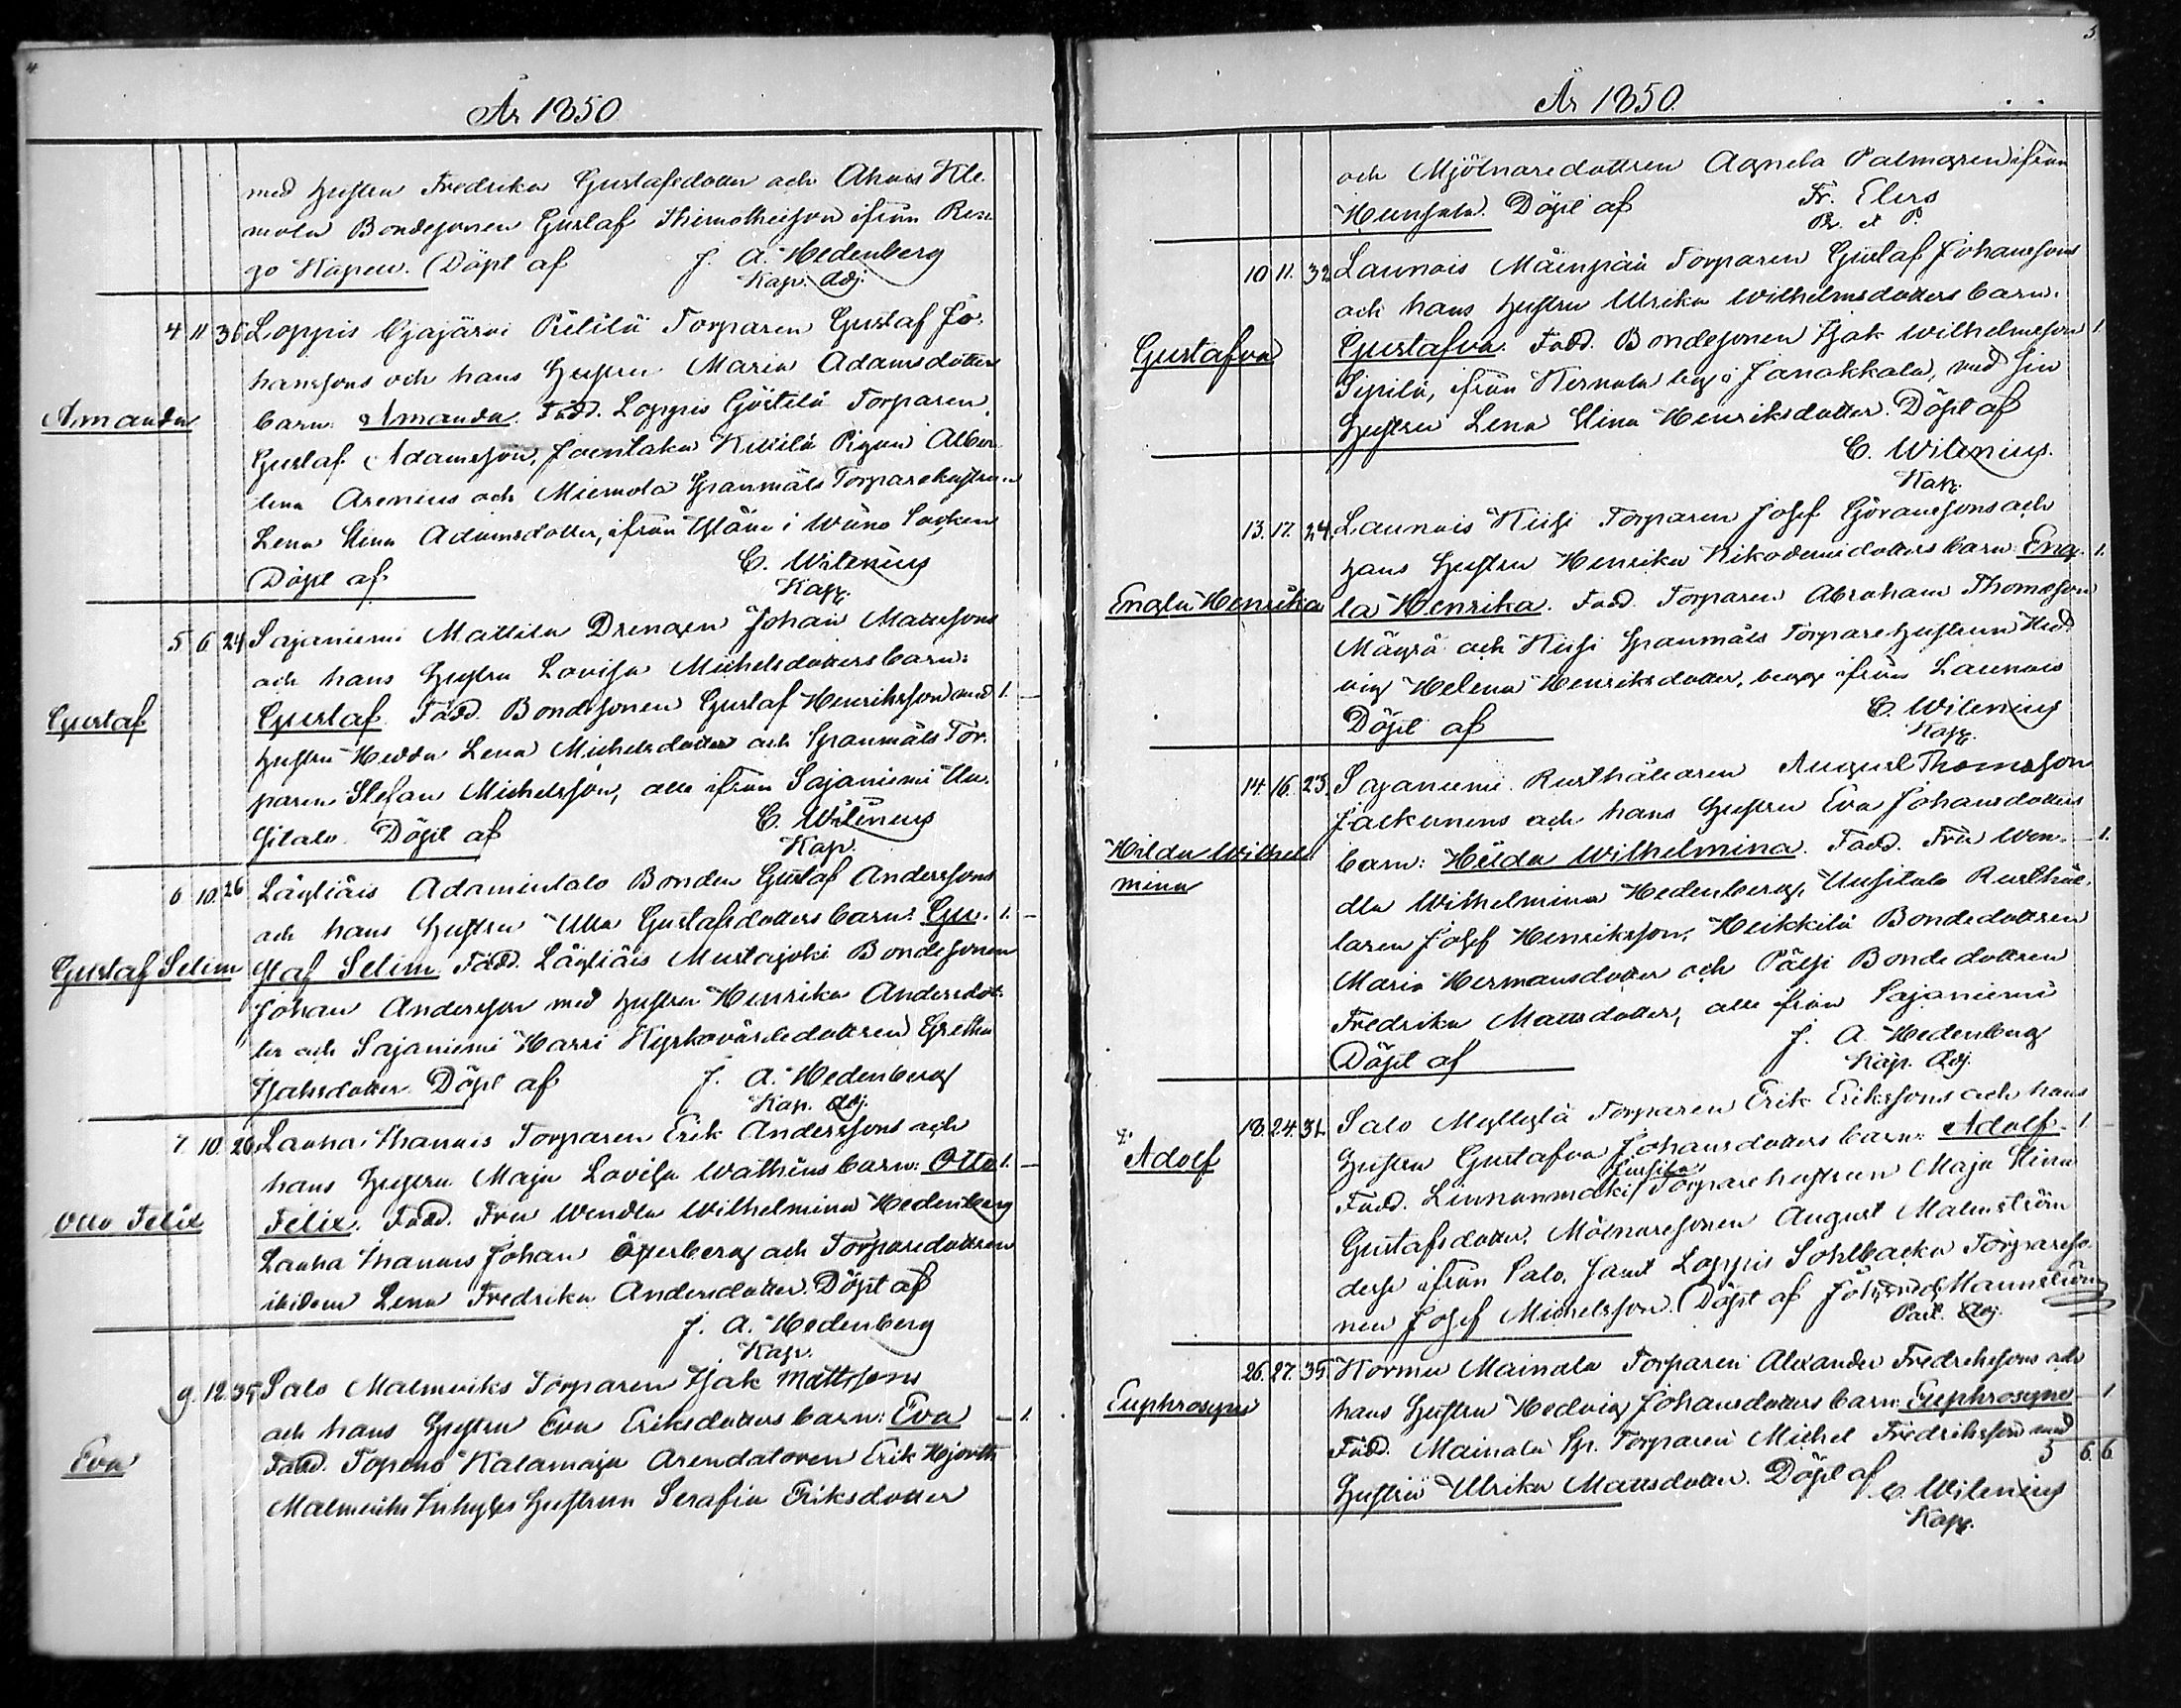 4
År 1850
med hustrun Fredrika Gustafsdotter och Ahois Kle-
mola Bondesonen Gustaf Thimotheison ifrån Ren-
go Kapell. Döpt af J. A. Hedenberg
Kap. Adj.
4 11 36 Loppis Ojajärvi Pietilä Torparen Gustaf Jo-
hanssons och hans hustru Maria Adamsdotters
Amanda
barn: Amanda. Fadd. Loppis Torparen
Gustaf Adamsson, Joentaka Kivilä Pigan Alber-
tina Arenius och Miemola Spanmåls Torparehustrun
Lena Stina Adamsdotter, ifrån i Wåno Socken
Döpt af C. Wilenius
Kapp.
5 6 24 Sajaniemi Mattila Drengen Johan Mattssons
och hans hustru Lovisa Michelsdotters barn:
Gustaf
Gustaf. Fadd. Bondesonen Gustaf Henriksson med 1. –
hustru Hedda Lena Michelsdotter och Spanmåls Tor-
paren Stefan Michelsson, alla ifrån Sajaniemi Uu-
sitalo. Döpt af C. Wilenius
Kap.
6 10. 26 Läyliäis Adamintalo Bonden Gustaf Anderssons
och hans hustru Ulla Gustafsdotters barn: Gu- 1. –
Gustaf Selim
staf Selim. Fadd. Läyliäis Mustajoki Bondesonen
Johan Andersson med hustru Henrika Andersdot-
ter och Sajaniemi Harri Kyrkovärdedottren Gretha
Isaksdotter. Döpt af J. A. Hedenberg
Kap. Adj.
7. 10. 20 Lauha Thannis Torparen Erik Anderssons och
hans hustru Maja Lovisa Wathéns barn: Otto 1. –
Otto Felix
Felix. Fadd. Fru Wendla Wilhelmina Hedenberg
Lauha Thannis Johan Österberg och Torparedottren
ibidem Lena Fredrika Andersdotter. Döpt af
J. A. Hedenberg
Kap.
9. 12. 35 Salo Malmviks Torparen Isak Mattssons
och hans hustru Eva Eriksdotters barn: Eva – 1.
Eva
Fadd. Topeno Kalamaja Arendatoren Erik Hjorth
Malmviks Inhyses Hustrun Serafia Eriksdotter
5
År 1850.
och Mjölnaredottren Agneta Palmgren ifrån
Hunsala. Döpt af Fr. Elers
Pr. et P.
10 11. 32 Launois Mäenpää Torparen Gustaf Johanssons
och hans hustru Ulrika Wilhelmsdotters barn:
Gustafva
Gustafva. Fadd. Bondesonen Isak Wilhelmsson 1.
Sipilä, ifrån Kernala by i Janakkala, med sin
hustru Lena Stina Henriksdotter. Döpt af
C. Wilenius.
Kapp.
13. 17. 24 Launois Kiisi Torparen Josef Göranssons och
hans hustru Henrika Nikodemidotters barn: Eng- 1.
Engla Henrika
la Henrika. Fadd. Torparen Abraham Thomsson
Mäyrä och Kiisi Spanmåls Torparehustrun Hed-
vig Helena Henriksdotter, begge ifrån Launois
Döpt af C. Wilenius
Kapp.
14. 16. 23. Sajaniemi Rusthållaren August Thomsson
Jackunens och hans hustru Eva Johansdotters
Hilda Wilhel-
mina
barn: Hilda Wilhelmina. Fadd. Fru Wen- – 1.
dla Wilhelmina Hedenberg, Uusitalo Rusthål-
laren Josef Henriksson, Heikkilä Bondedottren
Maria Hermansdotter och Pälsi Bondedottren
Fredrika Mattsdotter, alla ifrån Sajaniemi
Döpt af J. A. Hedenberg
Kap. Adj.
18. 24. 31. Salo Myllylä Torparen Erik Erikssons och hans
Adolf
hustru Gustafva Johansdotters barn: Adolf. 1 –
Fadd. Linnanmäki Torparehustrun Maja Stina
Gustafsdotter, Mölnaresonen August Malmström
desse ifrån Salo, samt Loppis Sohlbacka Torpareso-
nen Josef Michelsson. Döpt af Joh. Mannström
Past. Adj.
26. 27. 35. Kormu Mainala Torparen Alexander Fredrikssons och
Euphrosyne
hans hustru Hedvig Johansdotters barn: Euphrosyne – 1
Fadd. Mainala Sp. Torparen Michel Fredriksson med
5 6. 6
hustru Ulrika Mattsdotter. Döpt af C. Wilenius
Kapp.